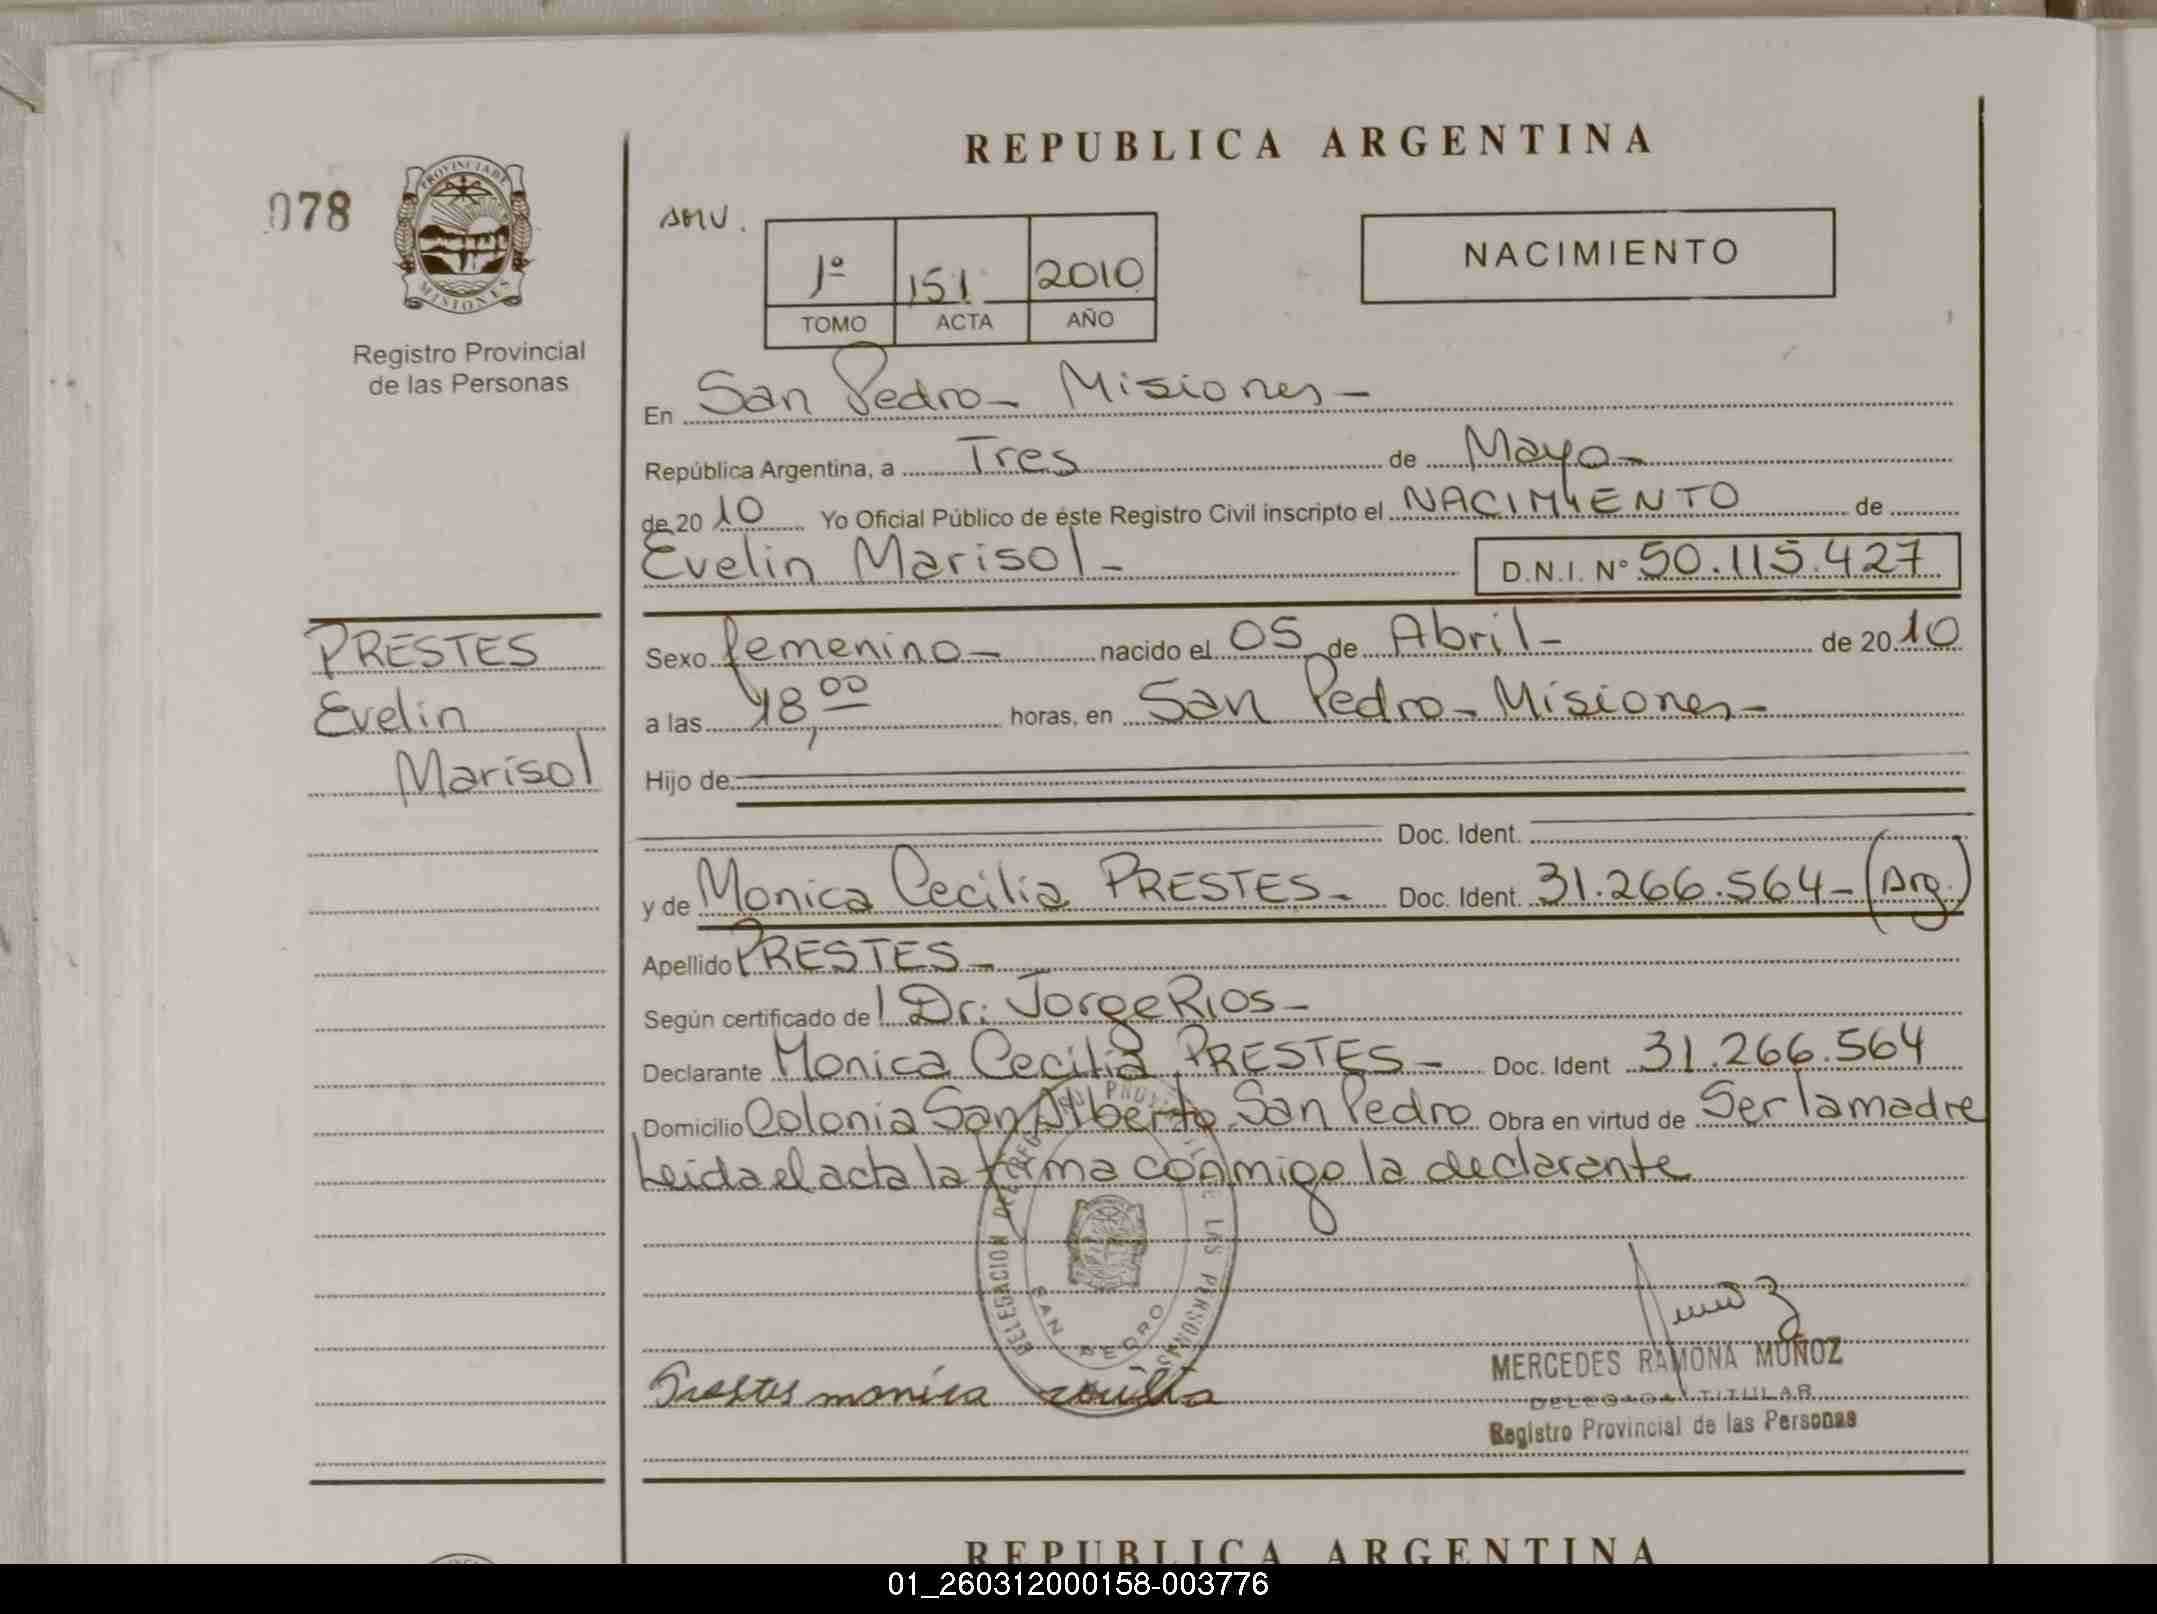 REPUBLICA ARGENTINA
078
PROVINCIA DE
MISIONES
Registro Provincial
de las Personas
AMV.
1º 151 2010
TOMO ACTA AÑO
NACIMIENTO
En San Pedro - Misiones -
República Argentina, a Tres de Mayo -
de 2010 Yo Oficial Público de éste Registro Civil inscripto el NACIMIENTO de
Evelin Marisol - D.N.I. Nº 50.115.427
PRESTES
Evelin
Marisol
Sexo femenino - nacido el 05 de Abril - de 2010
a las 18,00 horas, en San Pedro - Misiones -
Hijo de
Doc. Ident.
y de Monica Cecilia PRESTES - Doc. Ident. 31.266.564 - (Arg.)
Apellido PRESTES -
Según certificado del Dr: Jorge Rios -
Declarante Monica Cecilia PRESTES - Doc. Ident 31.266.564
Domicilio Colonia San Alberto San Pedro Obra en virtud de Ser la madre
Leida el acta la firma conmigo la declarante
DELEGACION DEL REG PROV LAS PERSONAS
SAN PEDRO
Prestes monica cecilia
MERCEDES RAMONA MUÑOZ
DELEGADA TITULAR
Registro Provincial de las Personas
REPUBLICA ARGENTINA
01_260312000158-003776